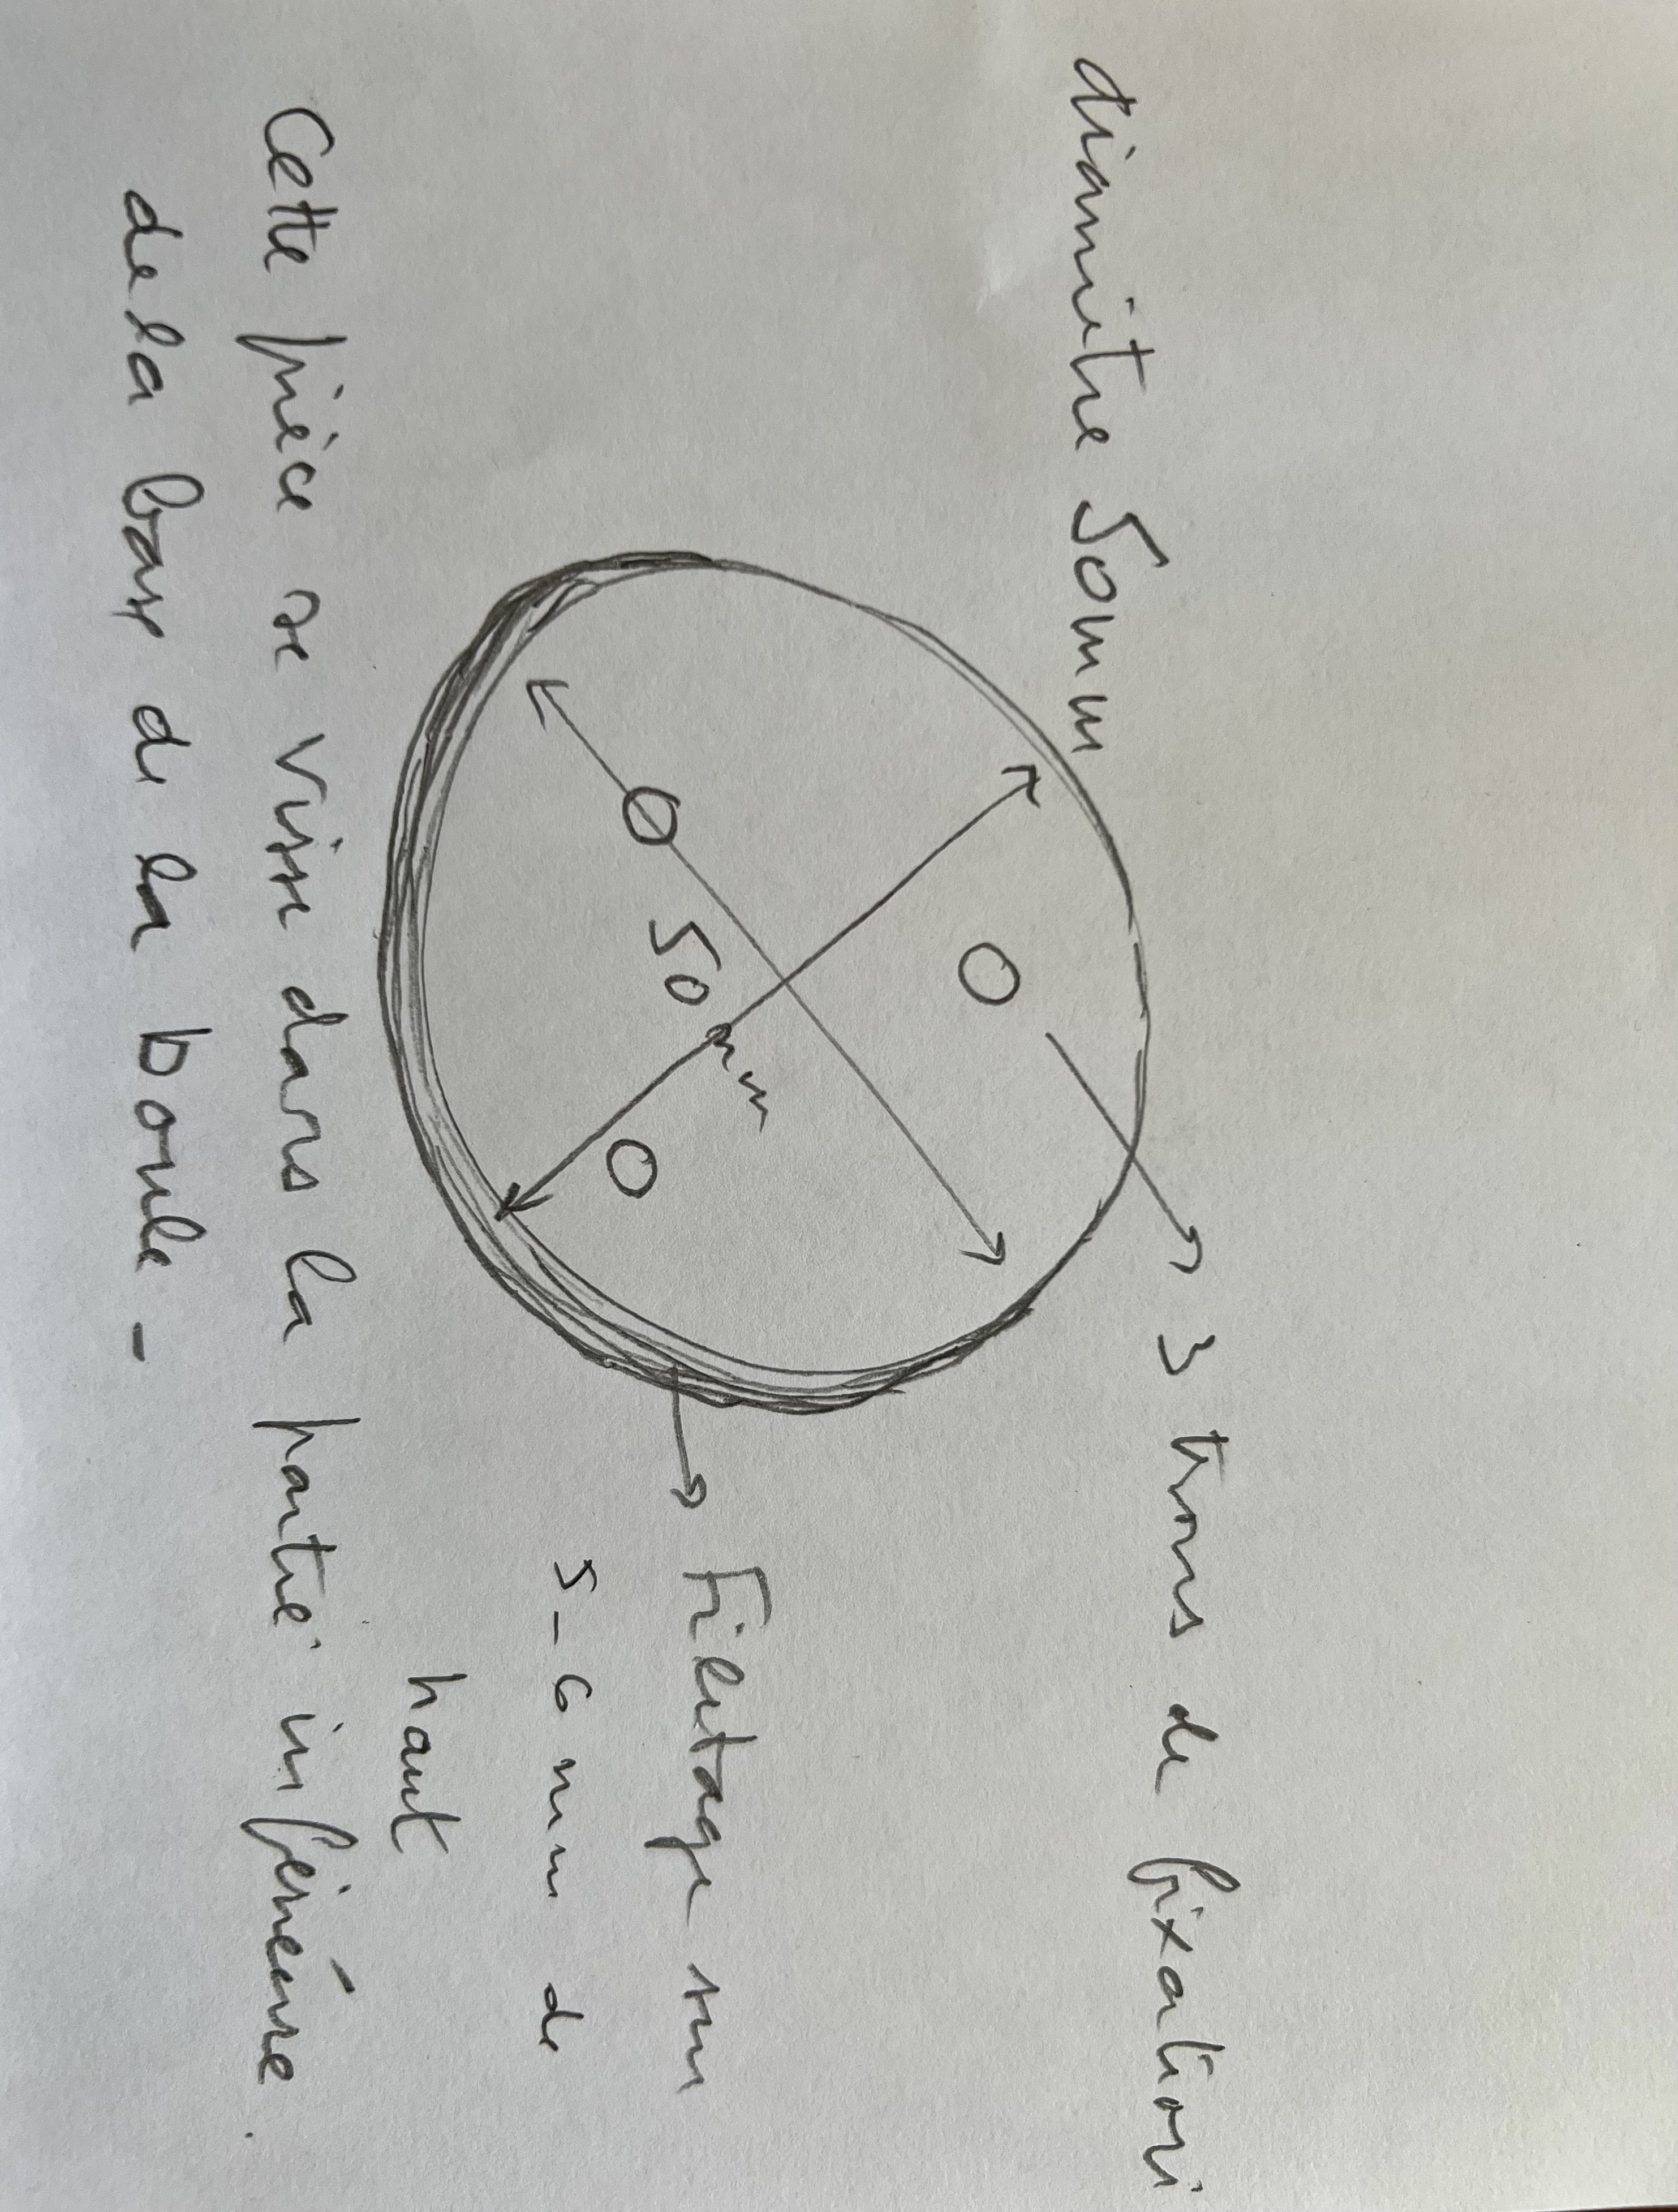 diamètre 50mm
3 trous de fixation
50 mm
Filetage sur
5-6 mm de
haut
Cette pièce se visse dans la partie inférieure.
de la base de la boule -